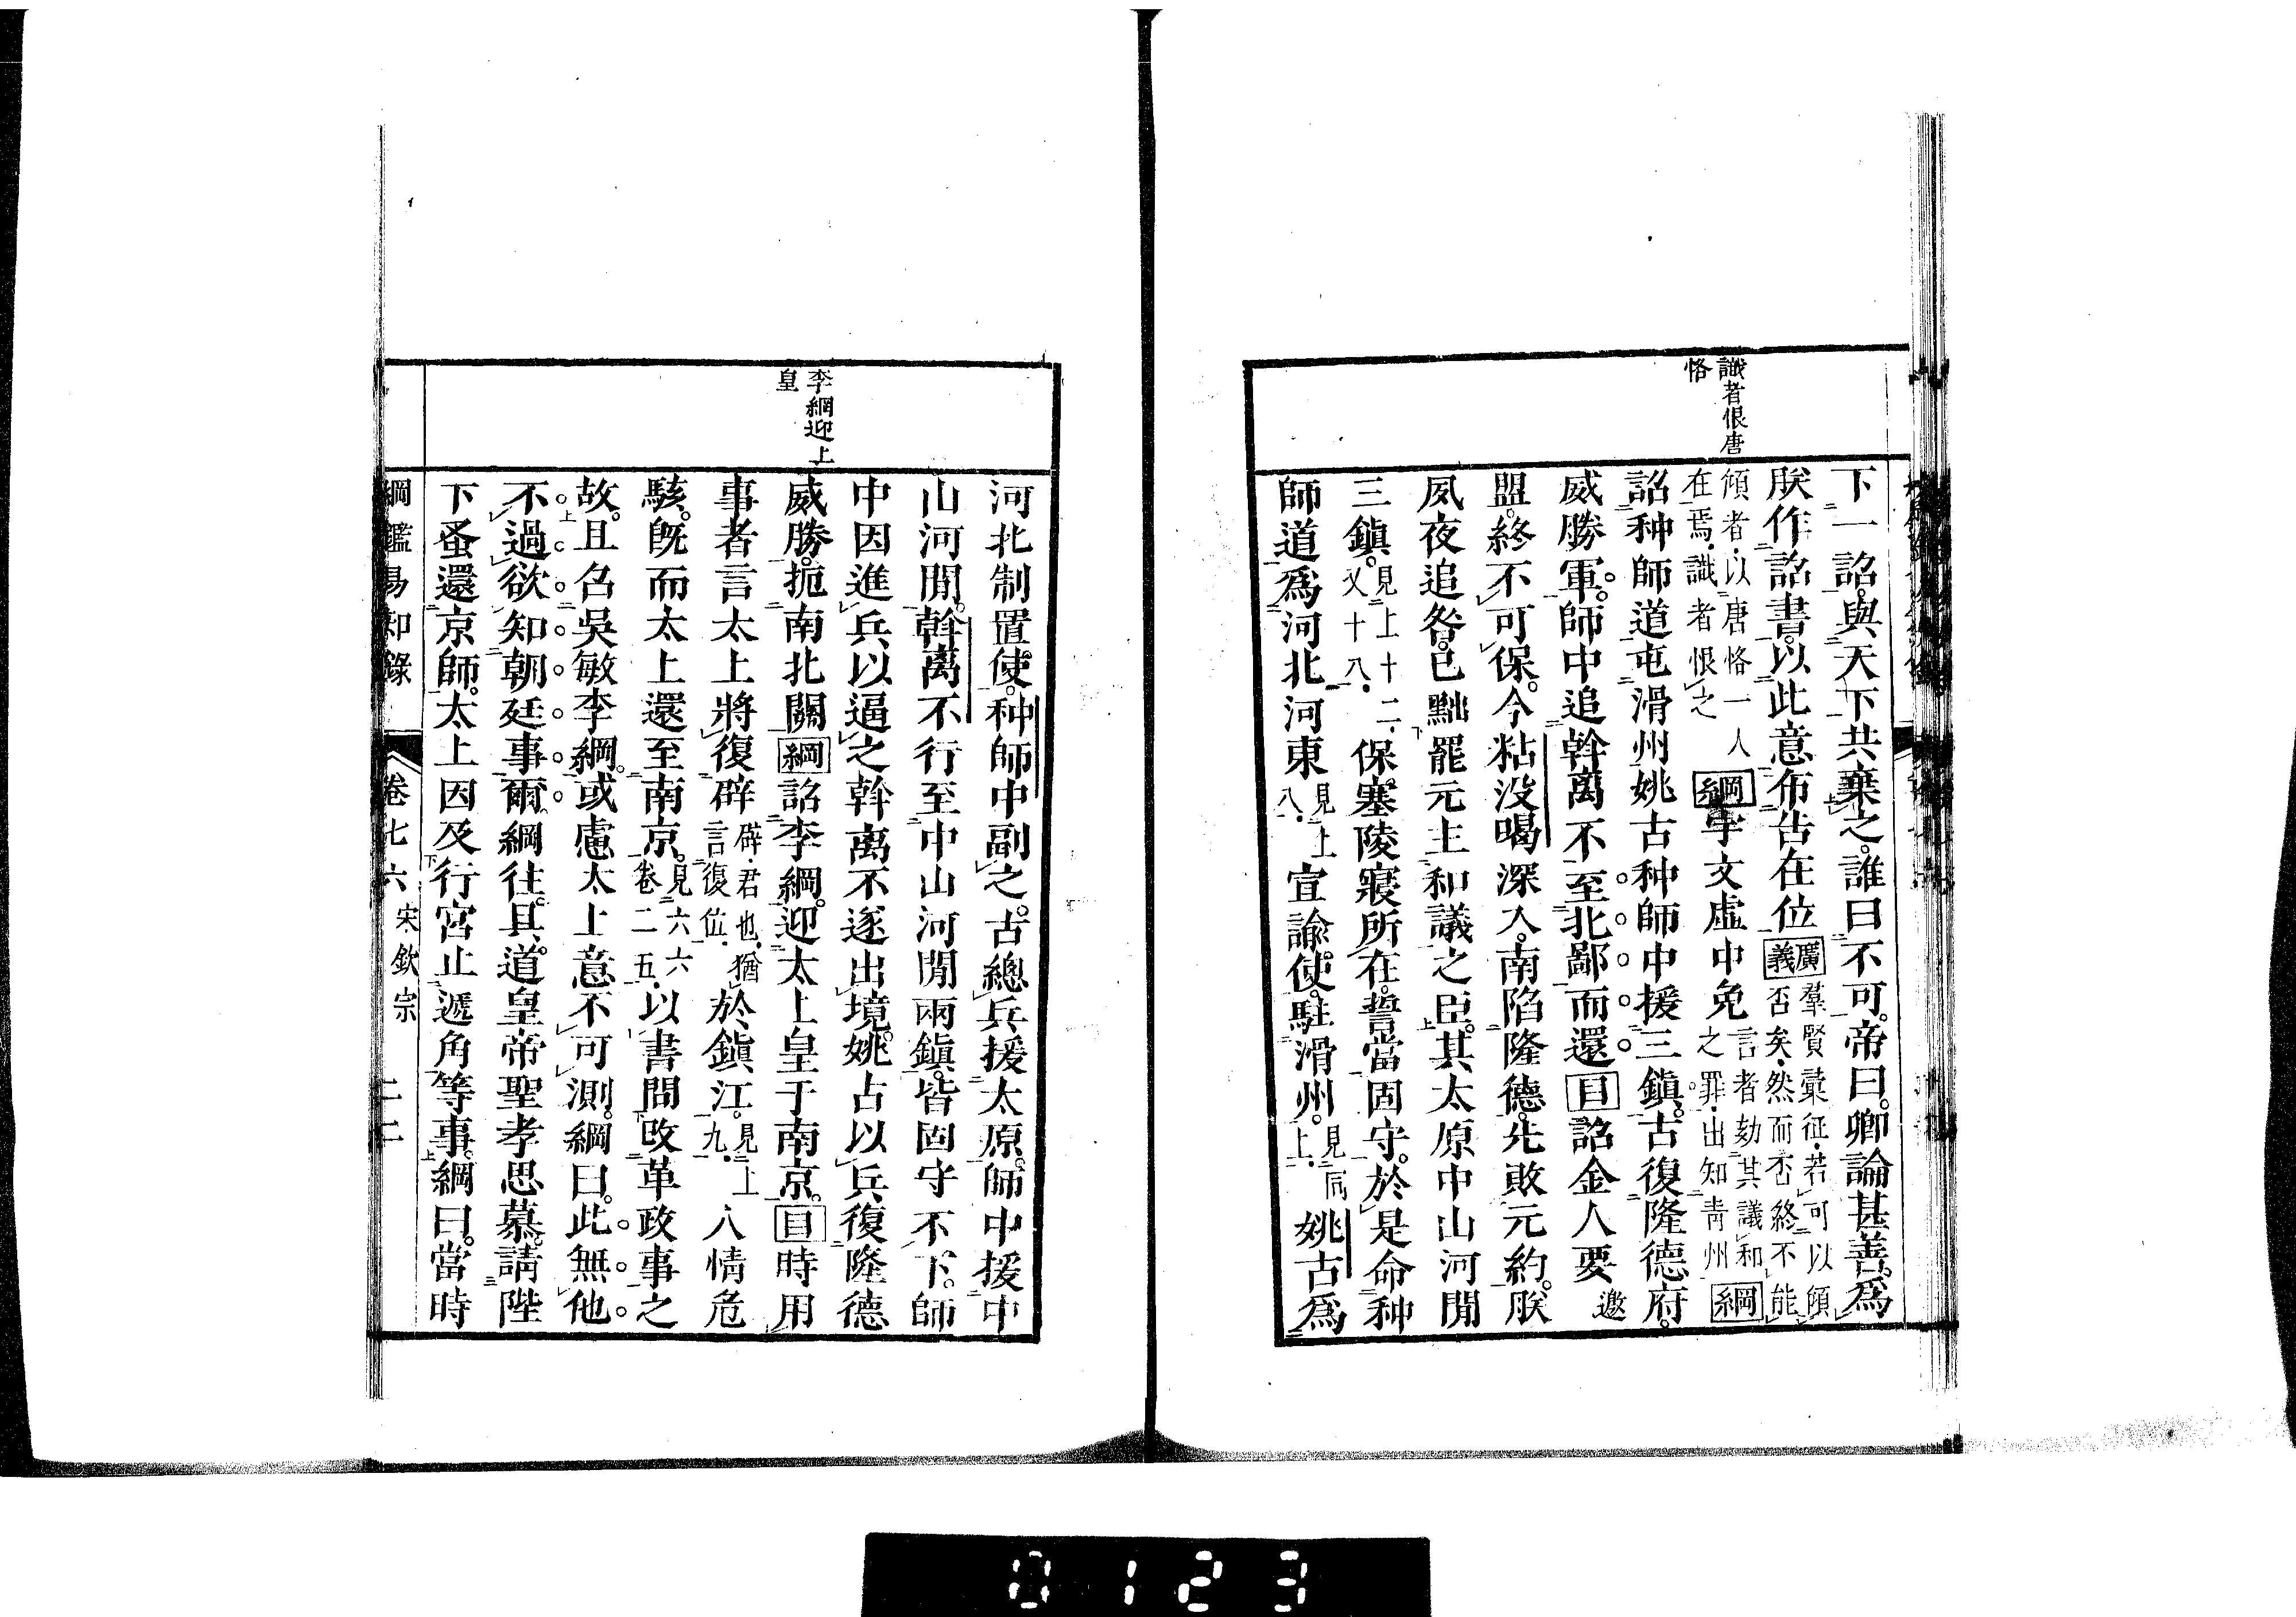 識者恨唐
恪
下一詔與天下共棄之。誰曰不可。帝曰。卿論甚善。爲
朕作詔書。以此意布吿在位廣義羣賢彙征、若可以頤
否矣、然而否終不能
傾者、以唐恪一人
在焉、識者恨之綱宇文虛中免言者劾其議和
之罪、出知靑州綱
詔种師道屯滑州姚古种師中援三鎭。古復隆德府。
威勝軍。師中追斡离不至北鄙而還目詔金人要邀
盟。終不可保。今粘没喝深入。南陷隆德。先敗元約。朕
夙夜追咎。已黜罷元主和議之臣。其太原中山河閒
三鎭。見上十二、
又十八、保塞陵寢所在。誓當固守。於是命种
師道爲河北河東見上
八、宣諭使。駐滑州。見同
上、姚古爲
李綱迎上
皇
河北制置使。种師中副之。古總兵援太原。師中援中
山河閒。斡离不行至中山河閒兩鎭。皆固守不下。師
中因進兵以逼之斡离不遂出境。姚古以兵復隆德
威勝。扼南北關綱詔李綱。迎太上皇于南京。目時用
事者言太上將復辟辟、君也、猶
言復位、於鎭江。見上
九、人情危
駭。旣而太上還至南京。見六六
卷二五、以書問改革政事之
故。且召吳敏李綱。或慮太上意不可測。綱曰。此無他
不過欲知朝廷事爾。綱往。具道皇帝聖孝思慕。請陛
下蚤還京師。太上因及行宮止遞角等事。綱曰。當時
綱鑑易知錄 卷七六 宋欽宗 二二